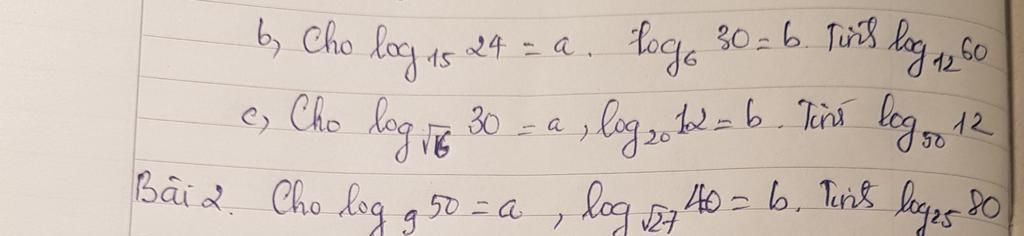 b, Cho log₁₅ 24 = a. log₆ 30 = b. Tính log₁₂ 60
c, Cho log_√6 30 = a, log₂₀ 12 = b. Tính log₅₀ 12
Bài 2. Cho log₉ 50 = a, log_√27 40 = b. Tính log₂₅ 80